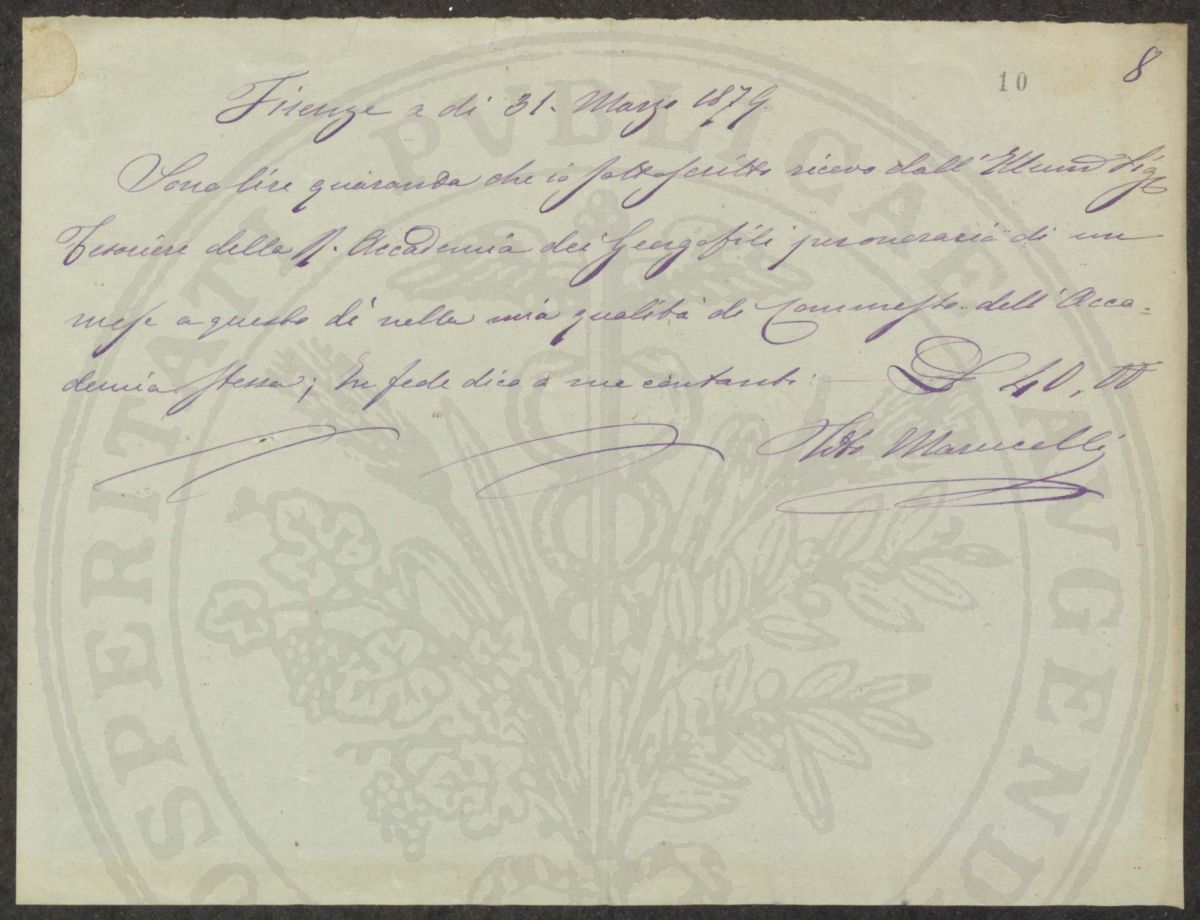 10 8
Firenze a di 31. Marzo 1879.
Sono lire quaranta che io sottoscritto ricevo dall' Illmo Sigr
Tesoriere della R. Accademia dei Georgofili per oneraria di un
mese a questo dì nella mia qualità di Commesso dell' Acca-
demia stessa; In fede dico a me contanti: — L 40,00
Tito Marucelli
PROSPERITATI PVBLICAE AVGENDAE